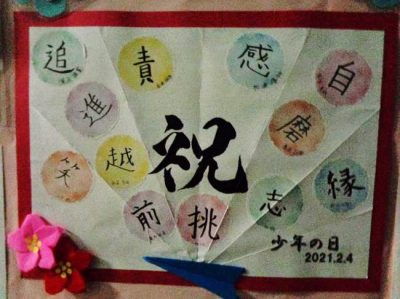 追
責
感
自
進
磨
笑
越
祝
縁
前
挑
志
少年の日
2021.2.4